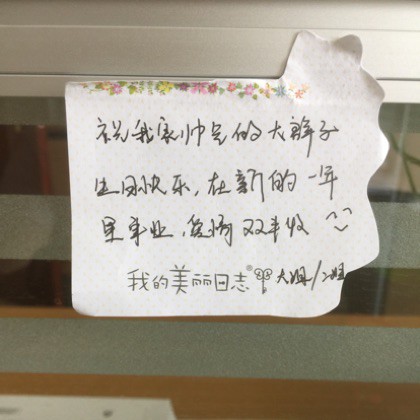 祝我家帅气的大胖子
生日快乐,在新的一年
里事业,爱情双丰收
我的美丽日志® 大姐/二姐